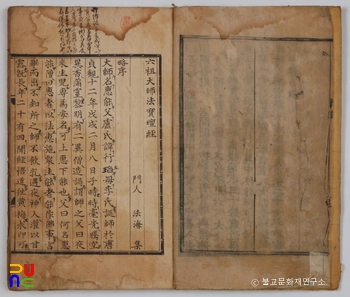 六祖大師法寶壇經
門人 法海 集
略序
大師名惠能父盧氏諱行瑫母李氏誕師於唐
貞觀十二年戊戌二月八日子時時毫光騰空
異香滿室黎明有二異僧造謁謂師之父曰夜
來生兒專爲安名可上惠下能也父曰何名惠
能僧曰惠者以法惠施衆生能者能作佛事言
畢而出不知所之師不飮乳遇夜神人灌以甘
露既長年二十有四聞經悟道往黃梅求印可
ⓒ 불교문화재연구소.